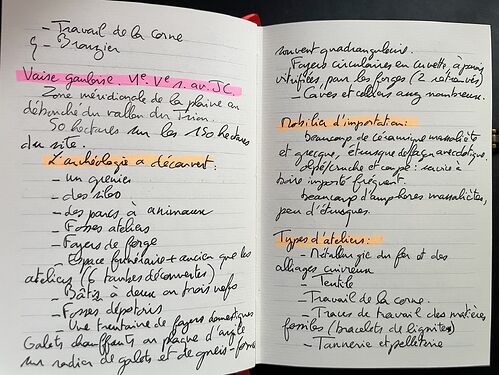 - Travail de la corne
- Bronzier
Vaise gauloise VIe. Ve s. av. JC.
Zone méridionale de la plaine au
débouché du vallon du Trion.
50 hectares sur les 150 hectares
du site.
L'archéologie a découvert :
- un grenier
- des silos
- des parcs à animaux
- Fosses ateliers
- Foyers de forge
- Espace funéraire + ancien que les
ateliers (6 tombes découvertes)
- Bâtis à deux ou trois nefs
- Fosses dépotoirs
- Une trentaine de foyers domestiques
Galets chauffants ou plaque d'argile
sur radier de galets et de gneiss -
souvent quadrangulaires.
Foyers circulaires en cuvette, à parois
vitrifiées, pour les forges (2 retrouvés)
- Caves et celliers assez nombreux.
Mobilier d'importation :
beaucoup de céramique massaliète
et grecque, étrusque de façon anecdotique.
olpé/cruche et coupe : service à
boire importé fréquent.
beaucoup d'amphores massaliètes,
peu d'étrusques.
Types d'ateliers :
- Métallurgie du fer et des
alliages cuivreux
- Textile
- Travail de la corne.
- Traces de travail des matières
fossiles (bracelets de lignites)
- Tannerie et pelleterie